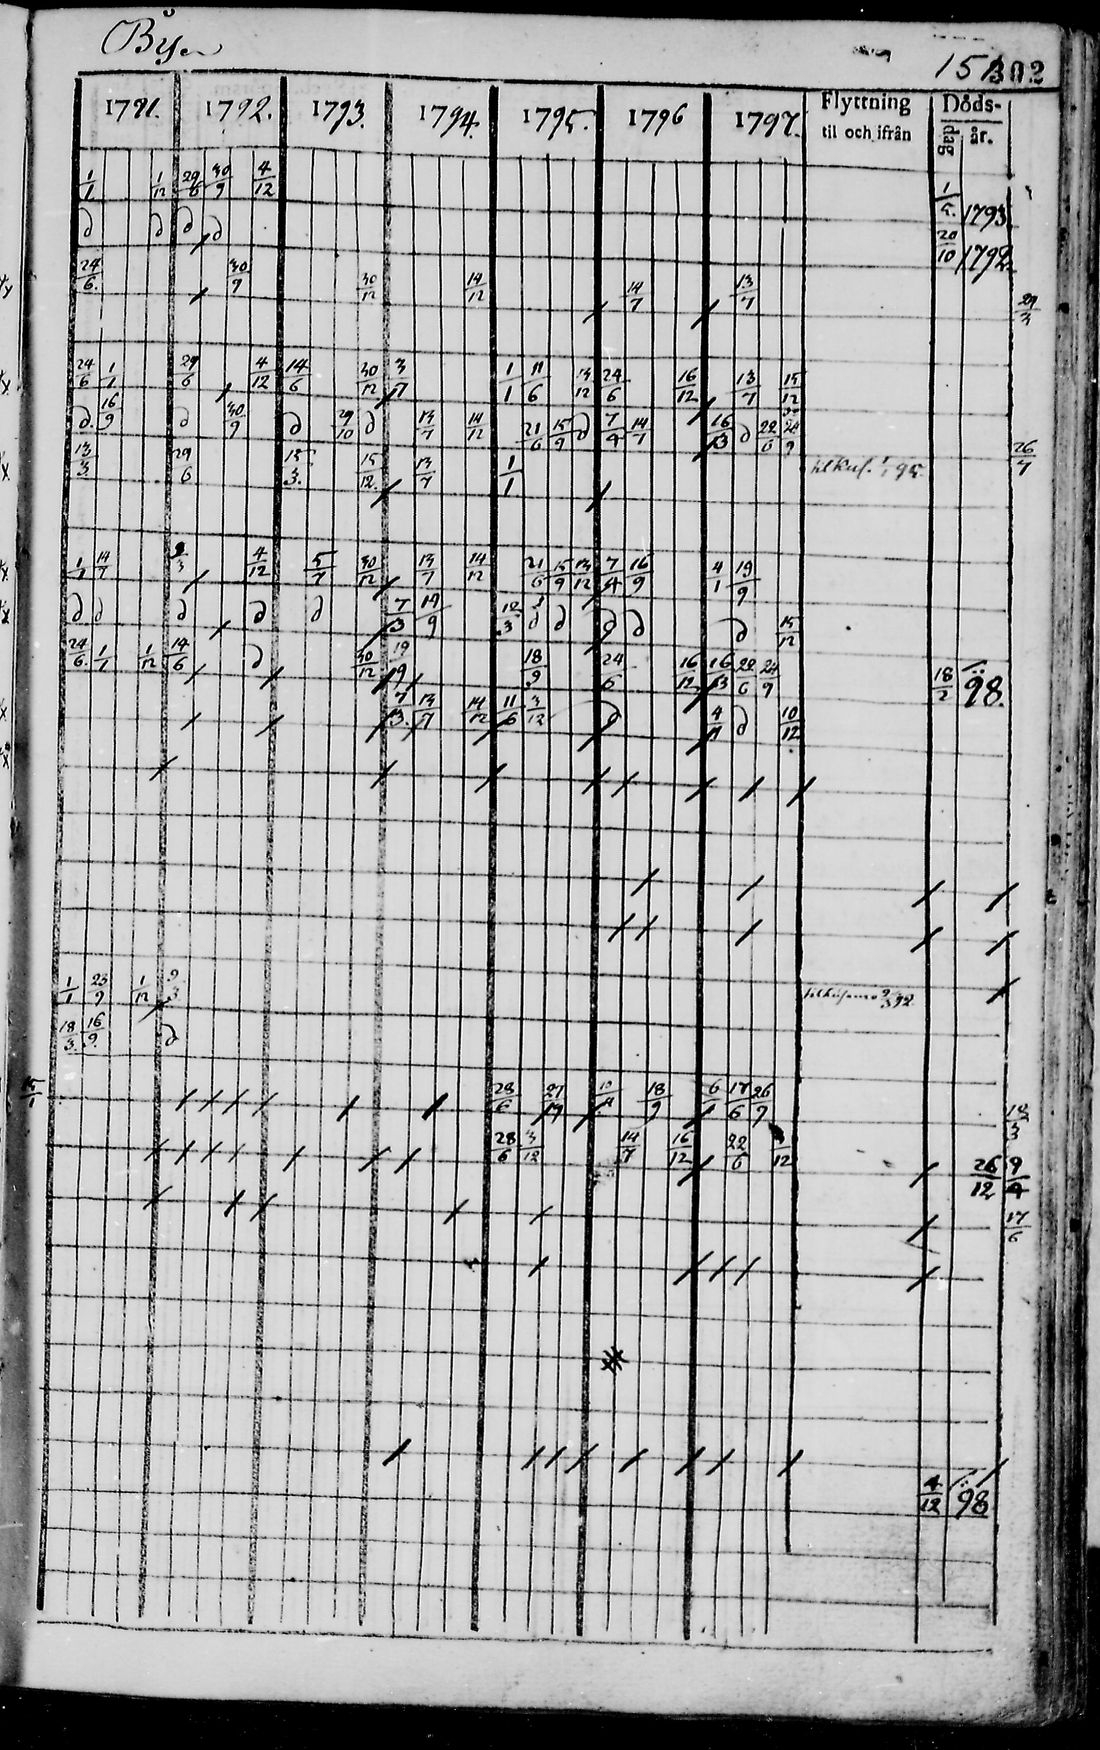 Byn
151 302
1791. 1792. 1793. 1794. 1795. 1796 1797. Flyttning til och ifrån Döds- dag år.
1/1 1/12 29/6 30/9 4/12 1/5. 1793
d d d d 20/10 1792.
24/6. 30/9 30/12 14/12 14/7 13/7 29/3
24/6 1/1 29/6 4/12 14/6 30/12 3/17 1/1 11/6 13/12 24/6 16/12 13/7 15/12
d. 16/9 d 30/9 d 29/10 d 13/7 14/12 21/6 15/9 d 7/4 14/7 16/13 d 22/6 24/9
13/3 29/6 15/3. 15/12. 13/7 1/1 1/1 95. 26/7
1/1 14/7 9/3 4/12 5/7 30/12 13/7 14/12 21/6 15/9 13/12 7/4 16/9 4/1 19/9
d d d d d 7/3 14/9 12/3 d d d d d 15/12
24/6. 1/1 1/12 14/6 d 30/12 19/9 18/9 24/6 16/12 16/13 22/6 24/9 18/2 98.
7/3. 13/7 14/12 11/6 3/12 d 4/11 d 10/12
1/1 23/9 1/12 9/3 9/3 92.
18/3. 16/9. d
15/1 28/6 18/9 6/1 17/6 26/9 12/3
28/6 3/12 14/7 16/12 22/6 26/12 9/4
17/6
4/12 98